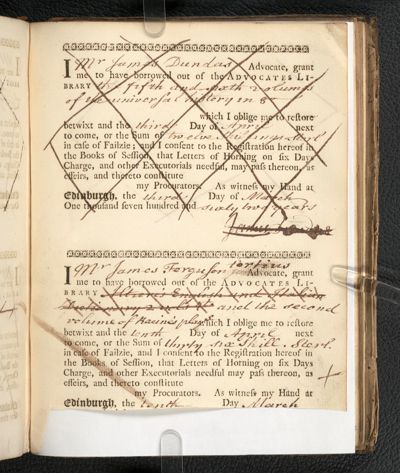 I Mr James Dundas Advocate, grant
me to have borrowed out of the ADVOCATES LI-
BRARY the fifth and sixth volumes
of the universal history in 8
which I oblige me to restore
betwixt and the third Day of April next
to come, or the Sum of twelve shillings sterl
in case of Failzie; and I consent to the Registration hereof in
the Books of Session, that Letters of Horning on six Days
Charge, and other Executorials needful, may pass thereon, as
effeirs, and thereto constitute
my Procurators. As witness my Hand at
Edinburgh, the third Day of March
One thousand seven hundred and sixty two years
James
I Mr James Ferguson tertius Advocate, grant
me to have borrowed out of the ADVOCATES LI-
BRARY English and Italian
and the second
volume of plays which I oblige me to restore
betwixt and the tenth Day of April next
to come, or the Sum of thirty six shill. Sterl.
in case of Failzie, and I consent to the Registration hereof in
the Books of Session, that Letters of Horning on six Days
Charge, and other Executorials needful may pass thereon, as
effeirs, and thereto constitute
my Procurators. As witness my Hand at
Edinburgh, the tenth Day March